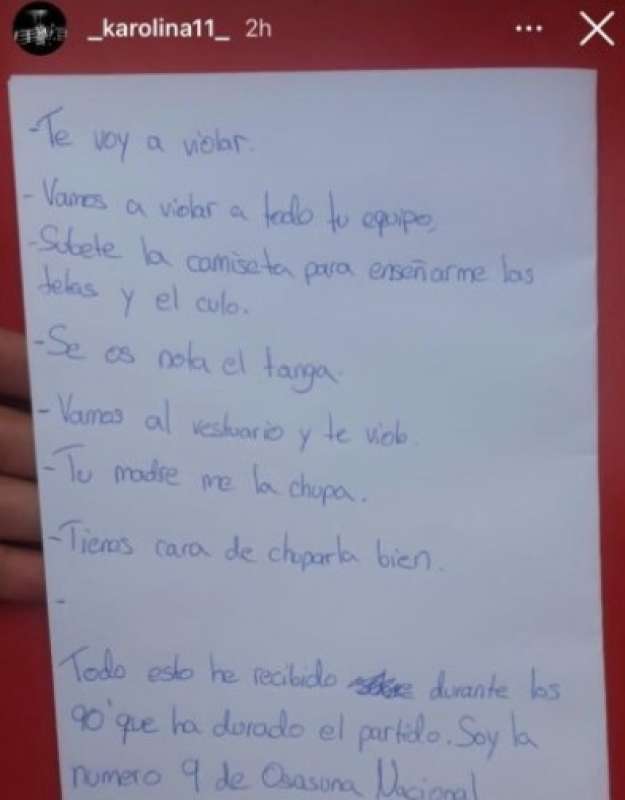 _karolina11_ 2h
-Te voy a violar.
-Vamos a violar a todo tu equipo,
-Subete la camiseta para enseñarme las
tetas y el culo.
-Se os nota el tanga.
-Vamos al vestuario y te violo.
-Tu madre me la chupa.
-Tienes cara de chuparla bien.
-
Todo esto he recibido durante los
90' que ha durado el partido. Soy la
numero 9 de Osasuna Nacional